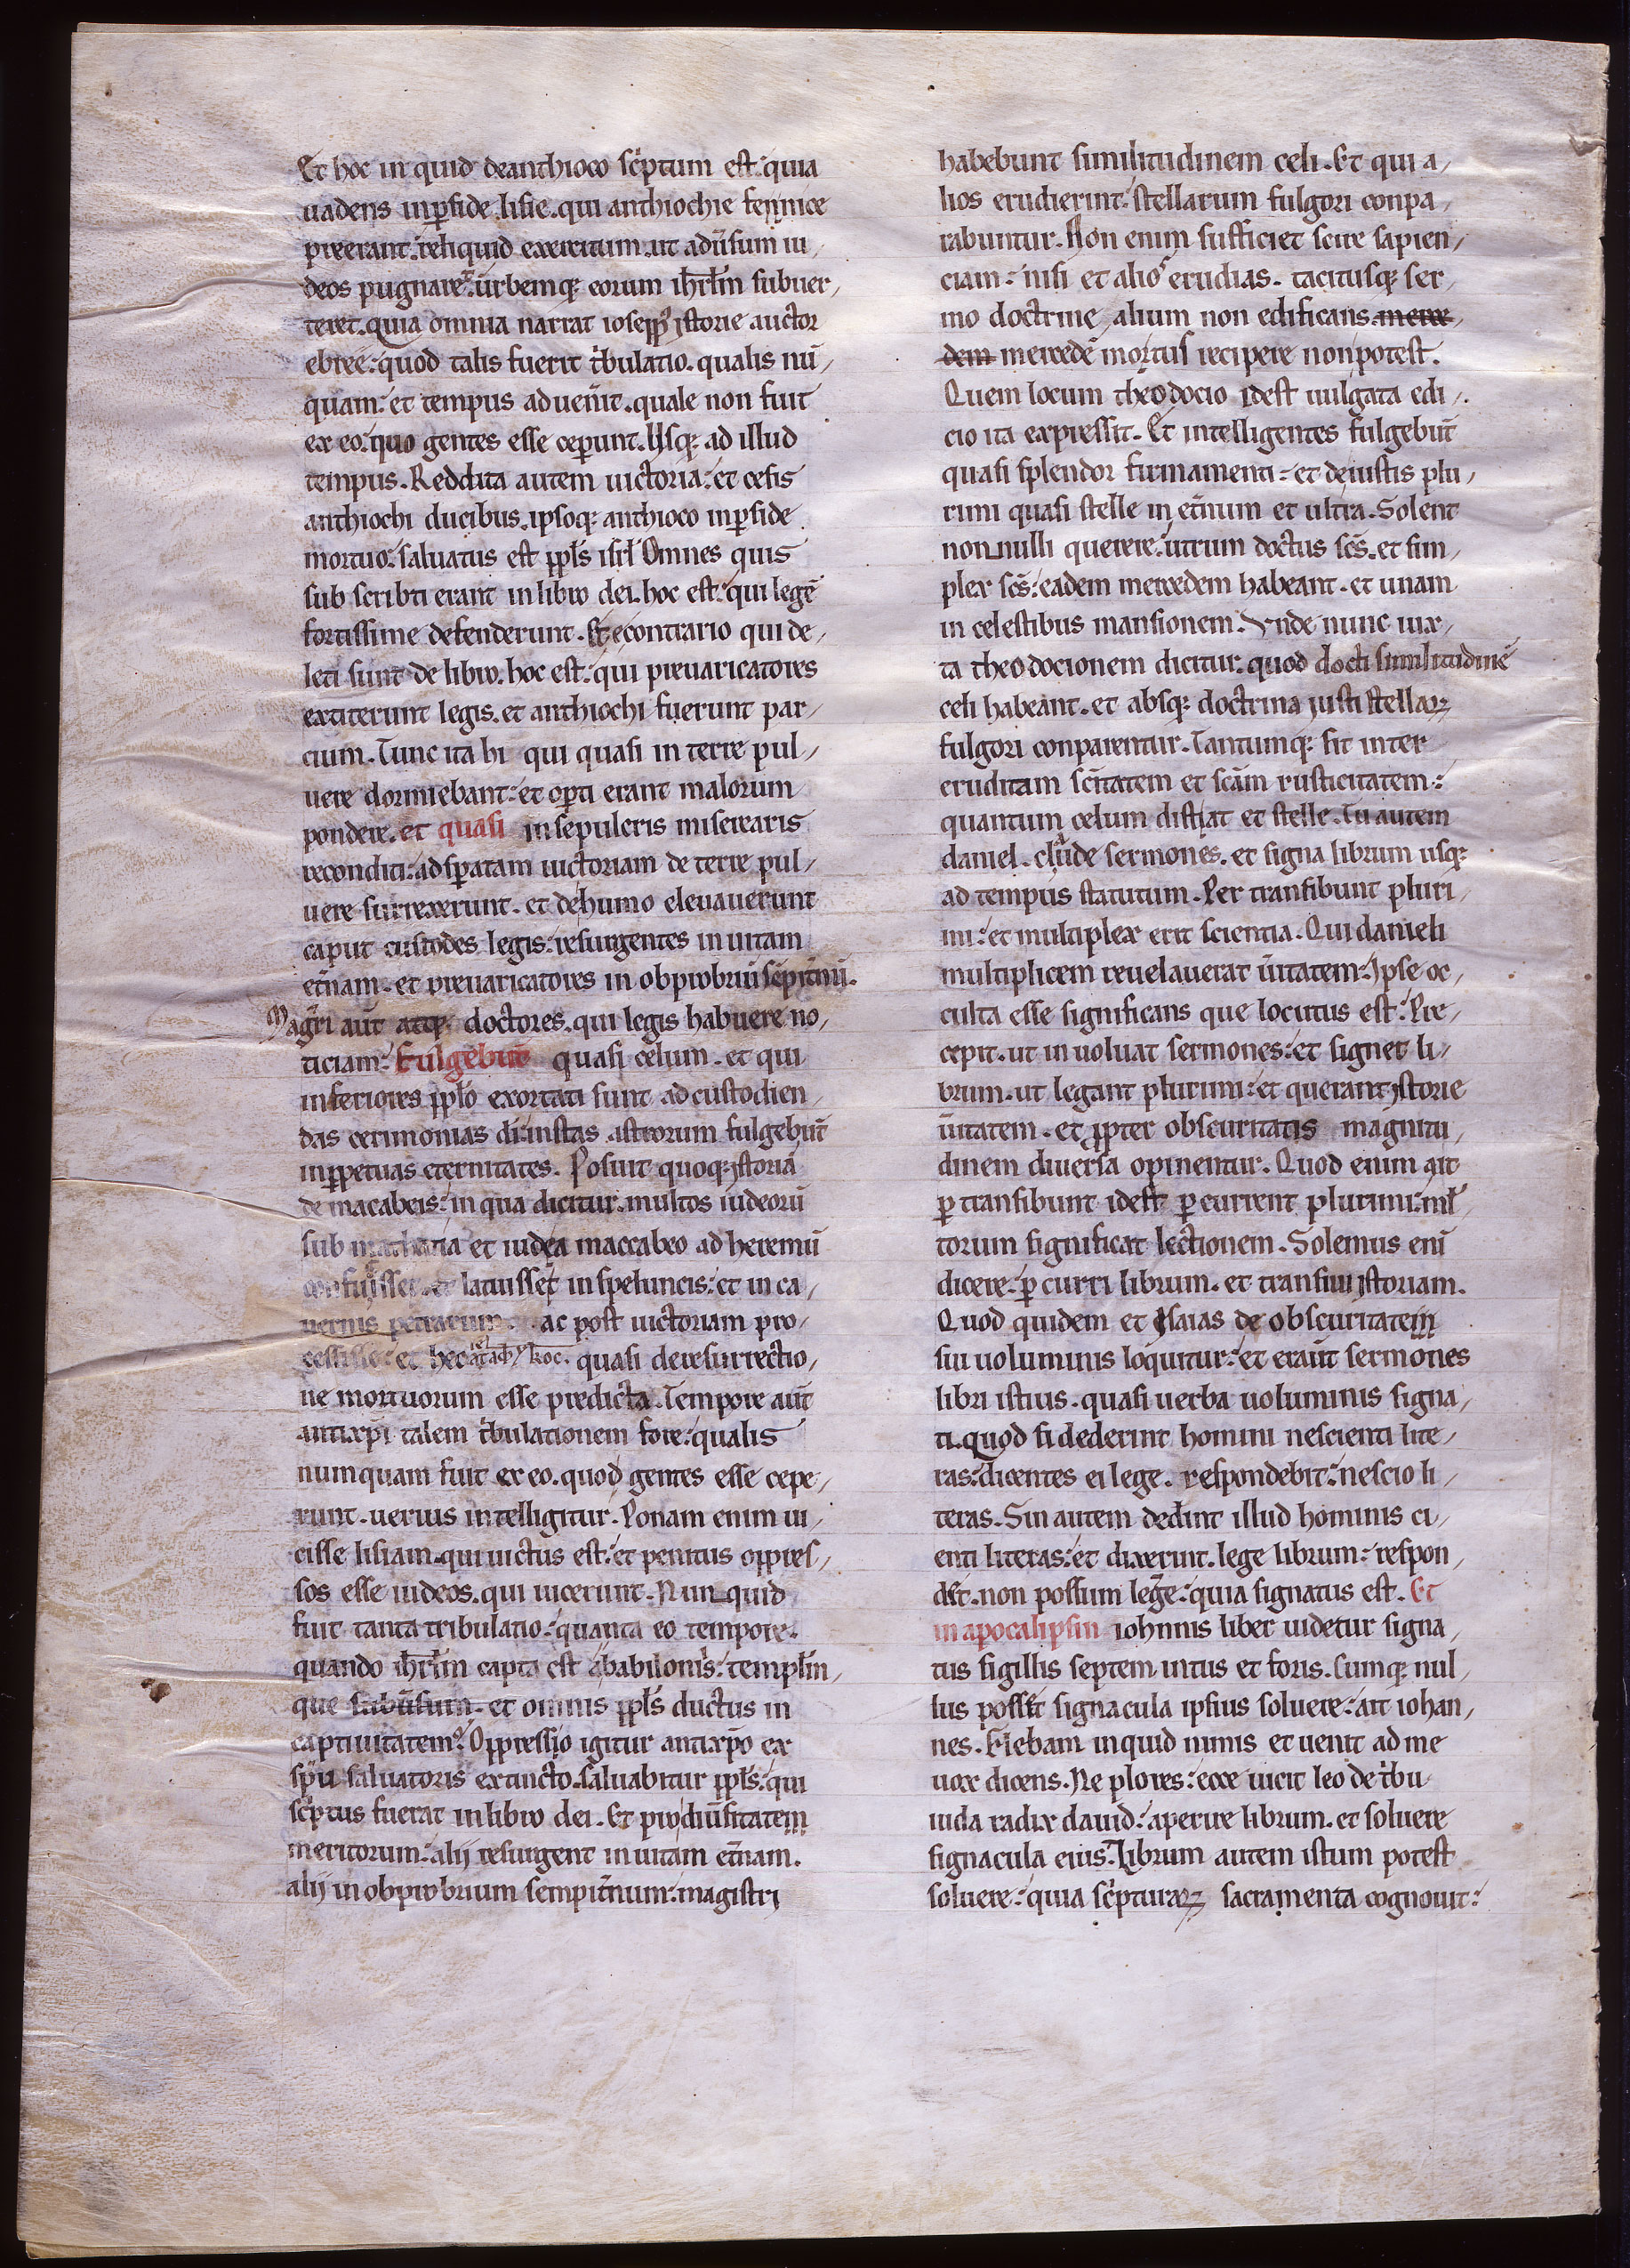 Et hoc in quid deanthioco sc̓ptum est: quia
uadens inꝑside lisie. qui anthiochie fennice
preerant: reliquid exercitum. ut adūsum iu
deos pugnaret: urbemq; eorum ihrl̄m subuer
teret. quia omnia narrat iosepp᷒ istorie auctor
ebree: quod talis fuerit t̓bulatio. qualis nū
quam: et tempus aduenit. quale non fuit
ex eo: quo gentes esse ceperunt. Usq; ad illud
tempus. Reddita autem uictoria: et cesis
anthiochi ducibus. ipsoq; anthioco inꝑside
mortuo: saluatus est ppl̄s isrl̄ Omnes quis
sub scribti erant in libro dei. hoc est: qui legē
fortissime defenderunt. Et econtrario qui de
leti sunt de libro. hoc est: qui preuaricatores
extiterunt legis. et anthiochi fuerunt par
cium. Tunc ita hi qui quasi in terre pul
uere dormiebant: et oꝑti erant malorum
pondere. et quasi in sepulcris miserearis
reconditi: ad sꝑatam uictoriam de terre pul
uere surrexerunt. et dehumo eleuauerunt
caput custodes legis: resurgentes in uitam
et̄nam. et preuaricatores in obprobriū sēpit̄nū.
Magr̄i aūt atq; doctores. qui legis habuere no
ticiam: fulgebūt quasi celum. et qui
inferiores ppl̄o exortati sunt ad custodien
das cerimonias di: instas astrorum fulgebūt
inꝑpetuas eternitates. Posuit quoq; istoriā
de macabeis: in qua dicitur. multos iudeorū
sub mathatia et iudea maccabeo ad heremū
confugisse. et latuisset in speluncis: et in ca
uernis petrarum. ac post uictoriam pro
cessisse: et hec quasi deresurrectio
ne mortuorum esse predicta. Tempore aūt
antixp̄i talem t̓bulationem fore: qualis
numquam fuit ex eo. quod gentes esse cepe
runt. uerius intelligitur. Ponam enim ui
cisse lisiam. qui uictus est: et penitus oppres
sos esse iudeos. qui uicerunt. Nun quid
fuit tanta tribulatio: quanta eo tempore.
quando ihrl̄m capta est a babilonis: templm̄
que subūsum. et omnis ppl̄s ductus in
captiuitatem? Oppressio igitur antixp̄o ex
spū saluatoris extincto. saluabitur ppl̄s: qui
sc̓ptus fuerat in libro dei. Et pro diūsitatem
meritorum: alij resurgent in uitam et̄nam.
alij in obprobrium sempit̄num: magistri
habebunt similitudinem celi. Et qui a
lios erudierint: stellarum fulgori conpa
rabuntur. Non enim sufficiet scire sapien
ciam: nisi et alios erudias. tacitusq; ser
mo doctrine alium non edificans. merce
dem mercedē mortus recipere non potest.
Quem locum theodocio idest uulgata edi
cio ita expressit. Et intelligentes fulgebūt
quasi splendor firmamenti: et deiustis plu
rimi quasi stelle in et̄num et ultra. Solent
non nulli querere: utrum doctus scs̄. et sim
plex scs̄: eadem mercedem habeant. et unam
in celestibus mansionem. Unde nunc iux
ta theodocionem dicitur: quod docti similitudinē
celi habeant. et absq; doctrina iusti stellaꝝ
fulgori conparentur. Tantumq; sit inter
eruditam sc̄itatem et scām rusticitatem:
quantum celum distat et stelle. Tu autem
daniel. clude sermones. et signa librum usq;
ad tempus statutum. Per transibunt pluri
mi: et multiplex erit scientia. Qui danieli
multiplicem reuelauerat ūitatem: ipse oc
culta esse significans que locutus est: Pre
cepit. ut in uoluat sermones: et signet li
brum. ut legant plurimi: et querant istorie
ūitatem. et ꝓpter obscuritatis magnitu
dinem diuersa opinentur. Quod enim ait
ꝑ transibunt idest ꝑcurrent plurimi: ml̄
torum significat lectionem. Solemus eni
dicere: ꝑ curri librum. et transiui istoriam.
Quod quidem et Isaias de obscuritatem
sui uoluminis loquitur: et erunt sermones
libri istius. quasi uerba uoluminis signa
ti. quod si dederint homini nescienti lite
ras: dicentes ei lege. respondebit: nescio li
teras. Sin autem dedint illud hominis ci
enti literas: et dixerint. lege librum: respon
det. non possum leḡe: quia signatus est. Et
in apocalipsin iohnnis liber uidetur signa
tus sigillis septem intus et foris. Cumq; nul
lus posset signacula ipsius soluere: ait iohan
nes. Flebam inquid nimis et uenit ad me
uox dicens. Ne plores: ecce uicit leo de t̓bu
iuda radix dauid: aperire librum. et soluere
signacula eius. Librum autem istum potest
soluere: quia sc̓pturaꝝ sacramenta cognouit: